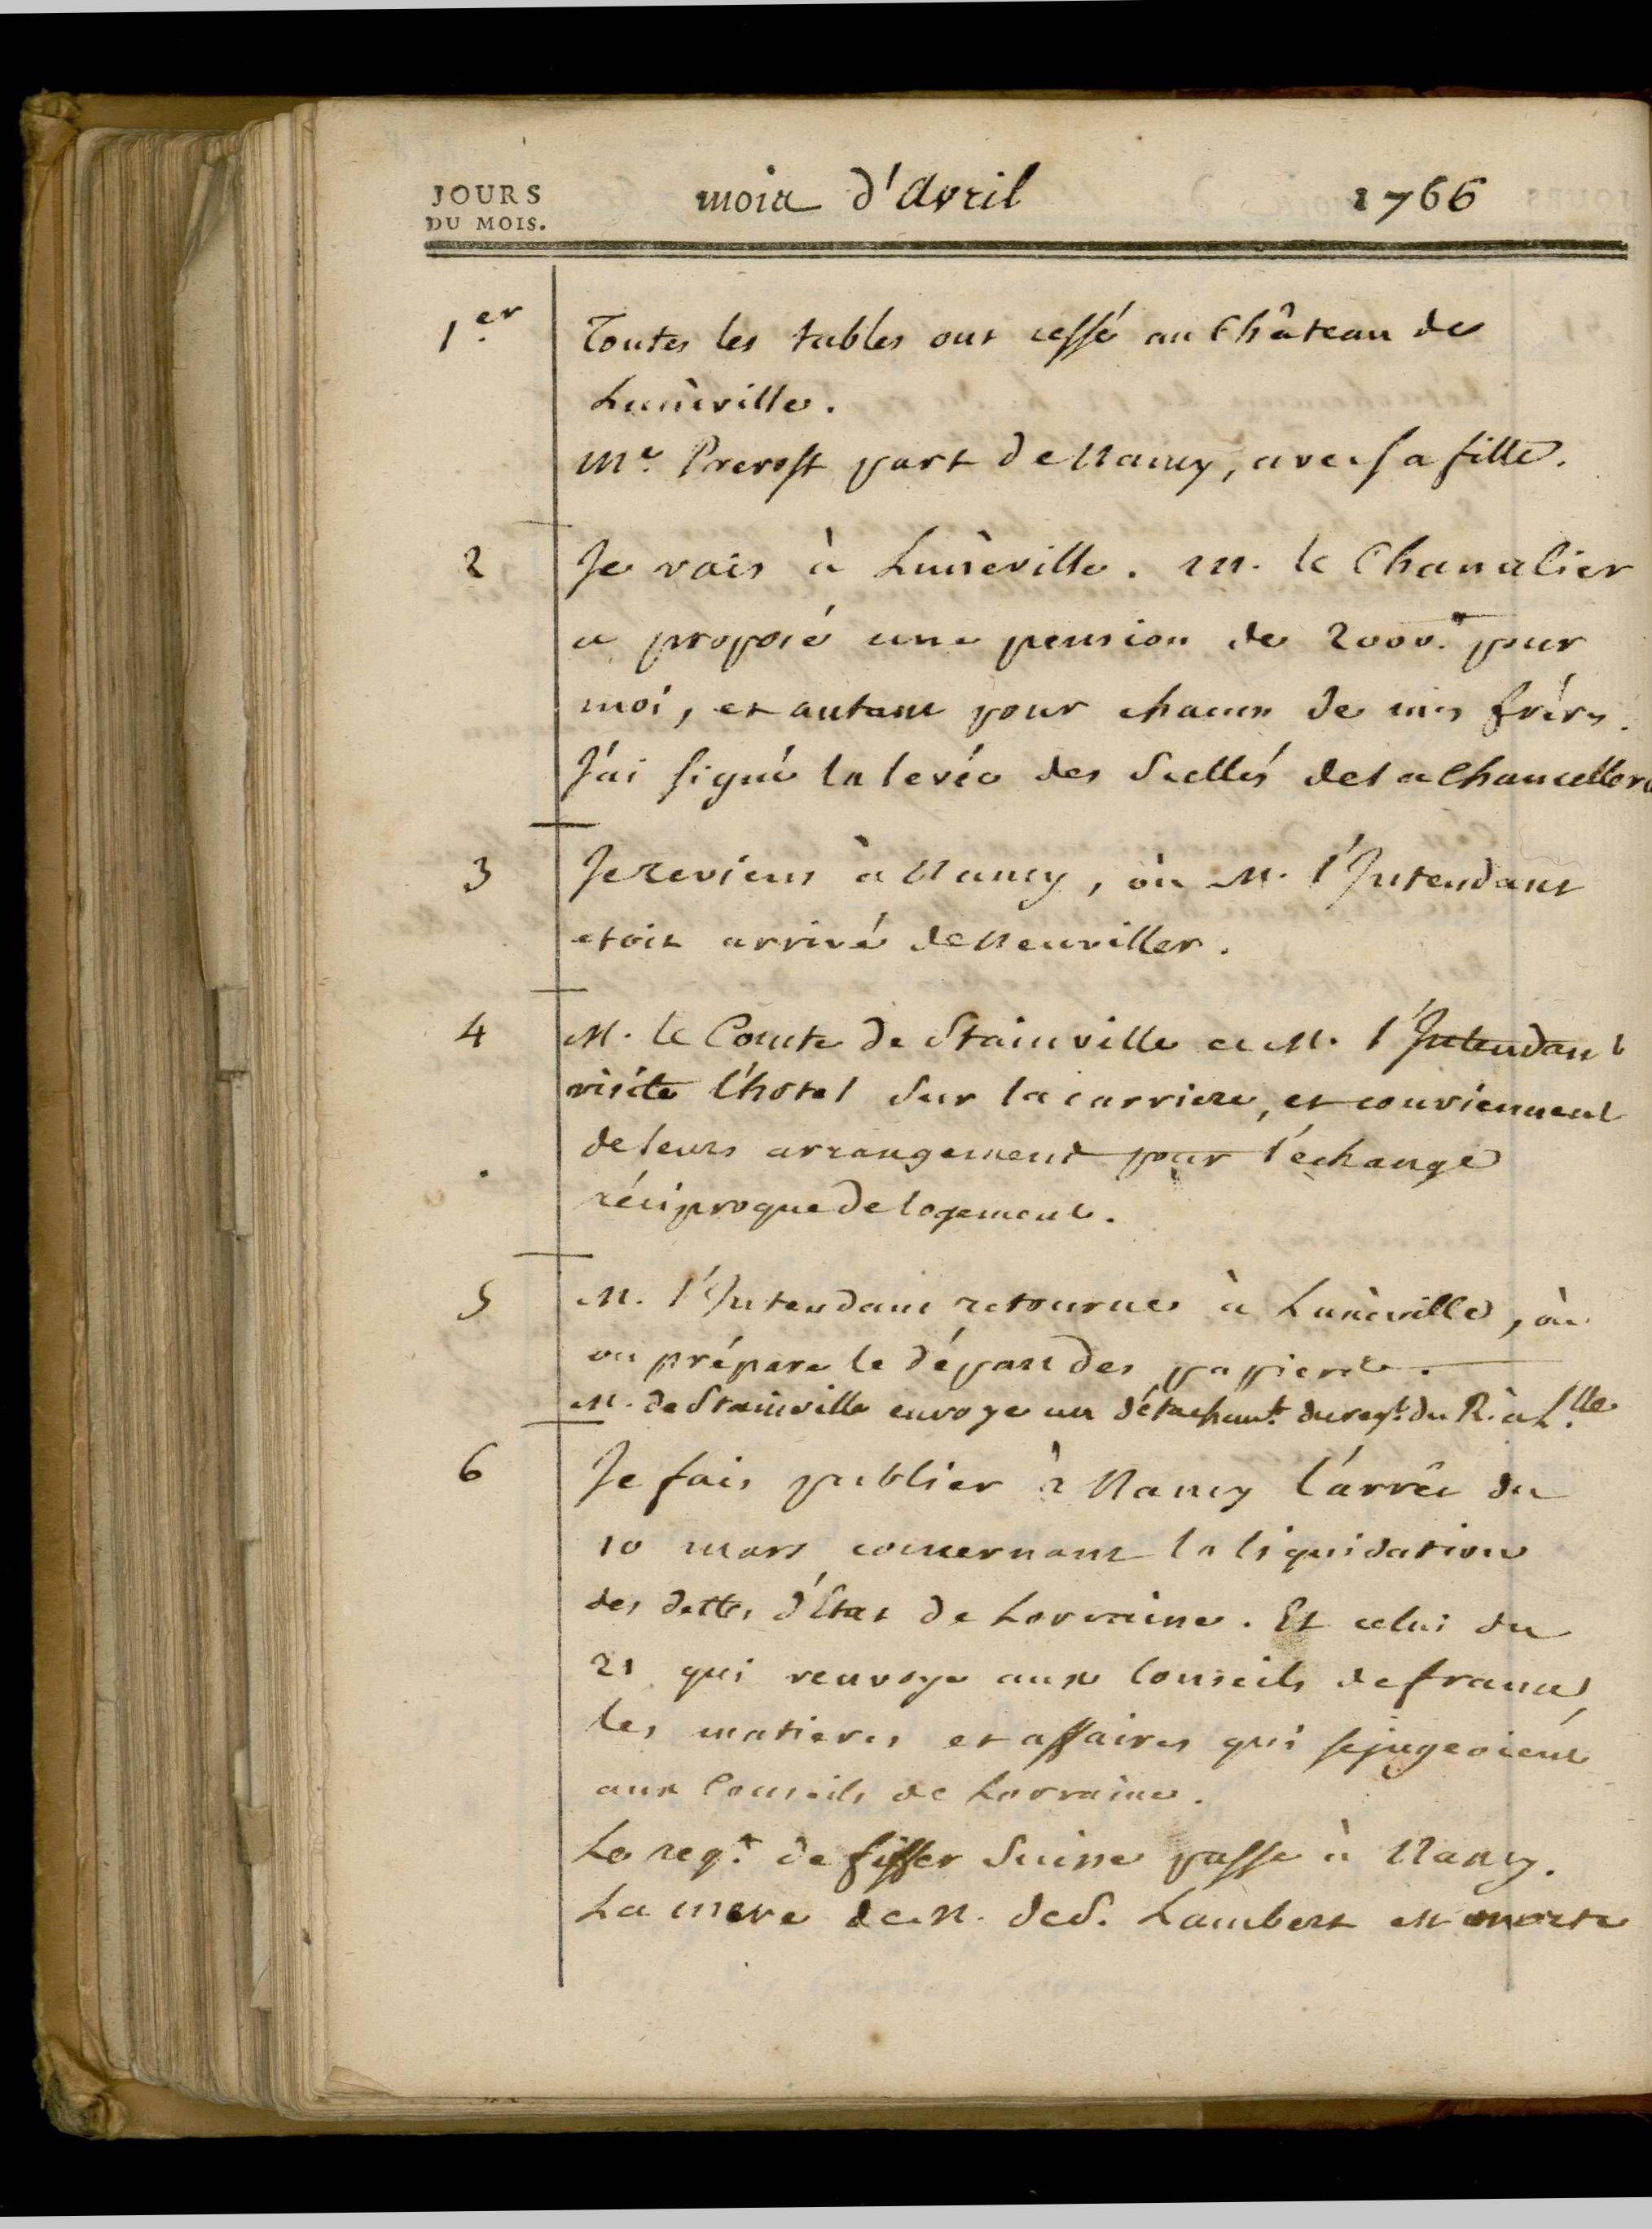 JOURS
DU MOIS.
mois d'Avril 1766
1.er Toutes les tables ont cessé au Château de
Lunéville.
Me. Prevost part de Nancy, avec sa fille.
2 Je vais à Lunéville. M. le Chancelier
a proposé une pension de 2000.# pour
moi, et autant pour chacun de mes frères.
J'ai signé la levée des Scellés de la Chancellerie
3 Je reviens à Nancy, où M. l'Intendant
etoit arrivé de Neuviller.
4 M. le Comte de Stainville et M. l'Intendant
visite l'hôtel sur la carriere, et conviennent
de leurs arrangement pour l'échange
réciproque de logement.
5 M. l'Intendant retourne à Lunéville, où
on prépare le départ des papiers.
M. de Stainville envoye un détachemt. du regt. du R. à L.lle
6 Je fais publier à Nancy l'arrêt du
10 mars concernant la liquidation
des dettes d'Etat de Lorraine. Et celui du
21 qui renvoye aux Conseils de france,
les matieres et affaires qui se jugeoient
aux Conseils de Lorraine.
Le regt. de fiffer Suisse passe à Nancy.
La mere de M. de S. Lambert est morte